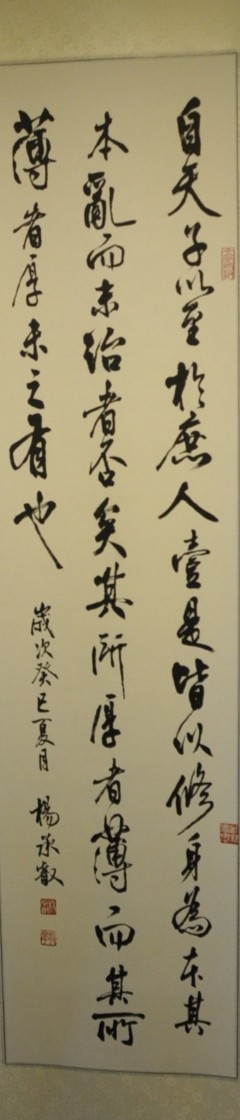 自天子以至於庶人壹是皆以修身為本其
本亂而末治者否矣其所厚者薄而其所
薄者厚未之有也
歲次癸巳夏月 楊承叡